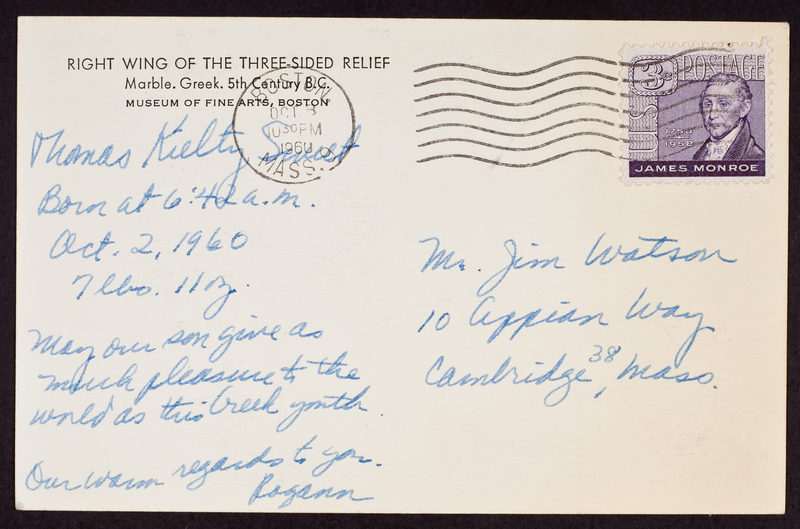 RIGHT WING OF THE THREE-SIDED RELIEF
Marble. Greek. 5th Century B.C.
MUSEUM OF FINE ARTS, BOSTON
BOSTON
OCT 3
10 30 PM
1960
MASS.
U.S. POSTAGE
3¢
1758
1958
JAMES MONROE
Thomas Kielty
Born at 6:42 a.m.
Oct. 2, 1960
7 lbs. 11 oz.
May our son give as
much pleasure to the
world as this Greek youth.
Our warm regards to you.
Rogann
Mr. Jim Watson
10 Appian Way
Cambridge 38, Mass.